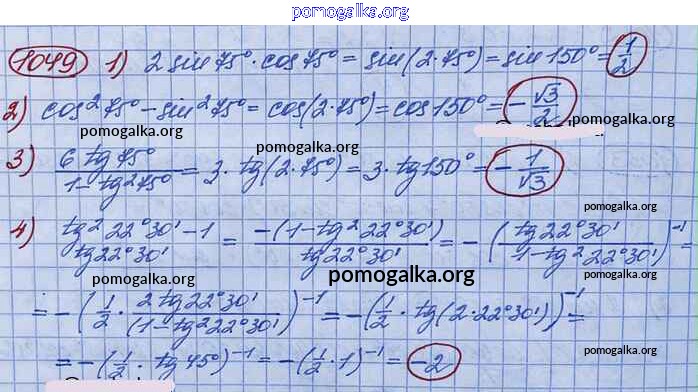 pomogalka.org
1049 1) 2 sin 75° · cos 75° = sin(2·75°) = sin 150° = 1/2
2) cos² 75° - sin² 75° = cos(2·75°) = cos 150° = -√3/2
pomogalka.org pomogalka.org
3) 6 tg 75° / 1 - tg² 75° = 3 · tg(2·75°) = 3 · tg 150° = -1/√3
pomogalka.org
4) tg² 22°30' - 1 / tg 22°30' = -(1 - tg² 22°30') / tg 22°30' = -(tg 22°30' / 1 - tg² 22°30')⁻¹ =
pomogalka.org pomogalka.org pomogalka.org
= -(1/2 · 2 tg 22°30' / (1 - tg² 22°30'))⁻¹ = -(1/2 · tg(2·22°30'))⁻¹ =
= -(1/2 · tg 45°)⁻¹ = -(1/2 · 1)⁻¹ = -2
pomogalka.org